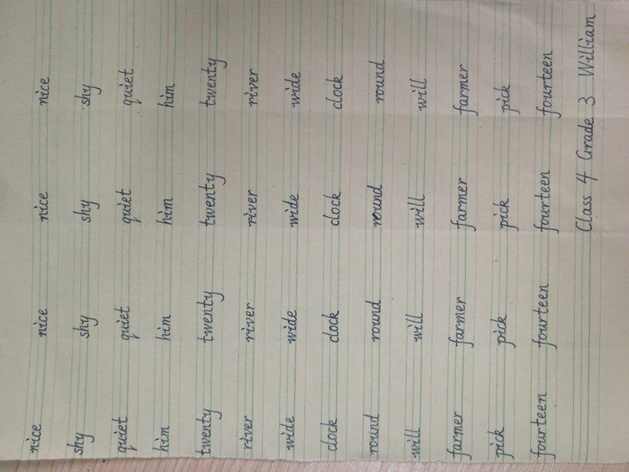 nice nice nice nice
shy shy shy shy
quiet quiet quiet quiet
him him him him
twenty twenty twenty twenty
river river river river
wide wide wide wide
clock clock clock clock
round round round round
will will will will
farmer farmer farmer farmer
pick pick pick pick
fourteen fourteen fourteen fourteen
Class 4 Grade 3 William